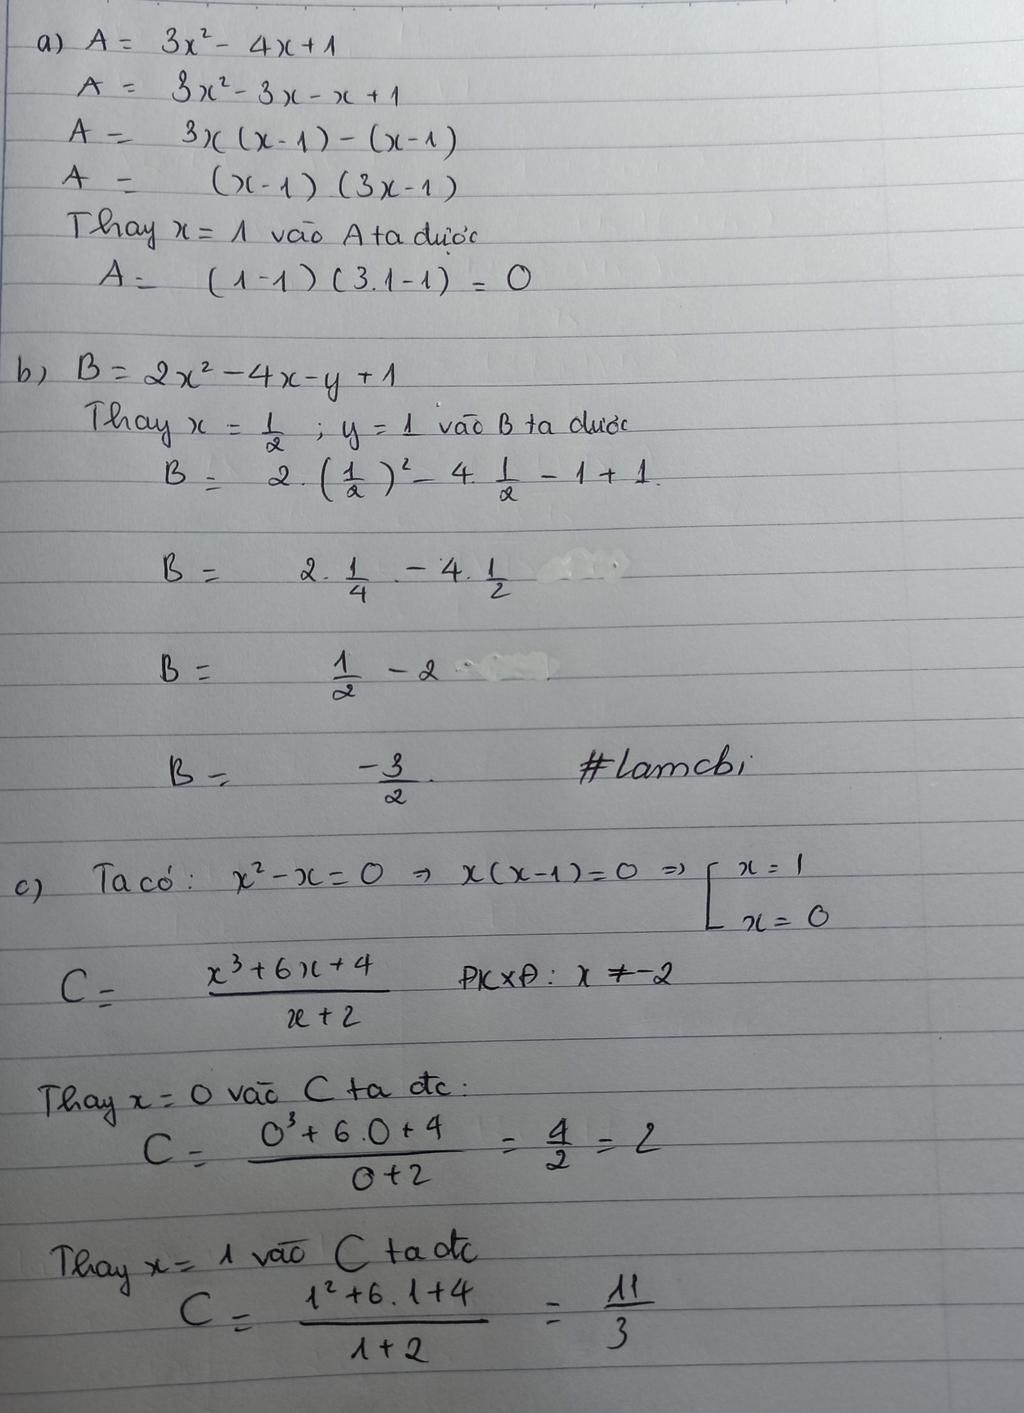 a) A = 3x² - 4x + 1
A = 3x² - 3x - x + 1
A = 3x(x-1) - (x-1)
A = (x-1)(3x-1)
Thay x = 1 vào A ta được
A = (1-1)(3.1-1) = 0
b) B = 2x² - 4x - y + 1
Thay x = 1/2 ; y = 1 vào B ta được
B = 2.(1/2)² - 4.1/2 - 1 + 1.
B = 2.1/4 - 4.1/2
B = 1/2 - 2
B = -3/2 #lamcbi
c) Ta có: x² - x = 0 → x(x-1) = 0 => [ x = 1
x = 0
C = (x³ + 6x + 4)/(x + 2) ĐKXĐ: x ≠ -2
Thay x = 0 vào C ta đc:
C = (0³ + 6.0 + 4)/(0 + 2) = 4/2 = 2
Thay x = 1 vào C ta đc
C = (1² + 6.1 + 4)/(1 + 2) = 11/3